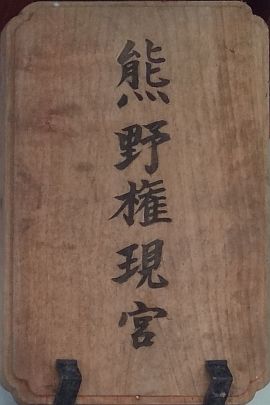 熊野権現宮